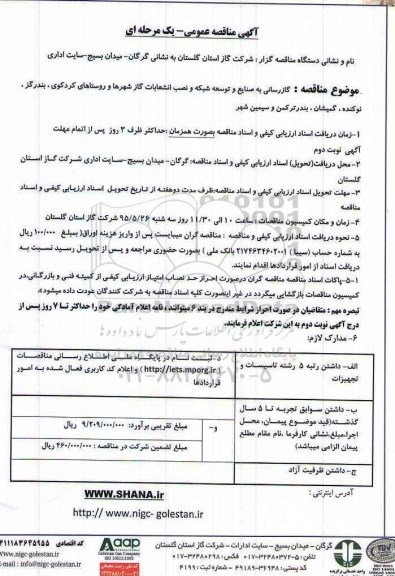 آگهی مناقصه عمومی- یک مرحله ای
نام و نشانی دستگاه مناقصه گزار : شرکت گاز استان گلستان به نشانی گرگان- میدان بسیج-سایت اداری
موضوع مناقصه : گازرسانی به صنایع و توسعه شبکه و نصب انشعابات گاز شهرها و روستاهای کردکوی، بندرگز ،
نوکنده ، گمیشان ، بندرترکمن و سیمین شهر
۱-زمان دریافت اسناد ارزیابی کیفی و اسناد مناقصه بصورت همزمان :حداکثر ظرف ۳ روز پس از اتمام مهلت
آگهی نوبت دوم
۲-محل دریافت(تحویل) اسناد ارزیابی کیفی و اسناد مناقصه: گرگان- میدان بسیج-سایت اداری شرکت گاز استان
گلستان
۳- مهلت تحویل اسناد ارزیابی کیفی و اسناد مناقصه:ظرف مدت دوهفته از تاریخ تحویل اسناد ارزیابی کیفی و اسناد
مناقصه
۴- زمان و مکان کمیسیون مناقصات : ساعت ۱۰ الی ۱۱/۳۰ روز سه شنبه ۹۵/۵/۲۶ شرکت گاز استان گلستان
۵- نحوه دریافت اسناد ارزیابی کیفی و مناقصه : مناقصه گران میبایست پس از واریز هزینه اوراق( بمبلغ ۱۰۰/۰۰۰ ریال
به شماره حساب (سیبا ) ۲۱۷۴۶۳۴۶۰۲۰۰۱ بانک ملی ) بصورت حضوری مراجعه و پس از تحویل رسید نسبت به
دریافت اسناد از امور قراردادها اقدام نمایند.
۵-۱-پاکات اسناد مناقصه مناقصه گران درصورت احراز حد نصاب امتیاز ارزیابی کیفی از کمیته فنی و بازرگانی،در
کمیسیون مناقصات بازگشایی میگردد در غیر اینصورت کلیه اسناد مناقصه به شرکت کنندگان عودت داده میشود.
تبصره مهم : متقاضیان در صورت احراز شرایط مندرج در بند ۶ میتوانند ، نامه اعلام آمادگی خود را حداکثر تا ۷ روز پس از
درج آگهی نوبت دوم به این شرکت اعلام فرمایند.
۶- مدارک لازم:
الف- داشتن رتبه ۵ رشته تاسیسات و تجهیزات
د- ثبت نام در پایگاه ملی اطلاع رسانی مناقصات (http://iets.mporg.ir) و اعلام کد کاربری فعال شده به امور قراردادها
ب- داشتن سوابق تجربه تا ۵ سال گذشته(قید موضوع پیمان، محل اجرا،مبلغ،نشانی کارفرما ،نام مقام مطلع پیمان الزامی میباشد)
و-
مبلغ تقریبی برآورد: ۹/۲۰۹/۰۰۰/۰۰۰ ریال
مبلغ تضمین شرکت در مناقصه : ۴۶۰/۰۰۰/۰۰۰ ریال
ج- داشتن ظرفیت آزاد
آدرس اینترنتی : WWW.SHANA.ir
http:// www.nigc- golestan.ir
گرگان - میدان بسیج - سایت ادارات - شرکت گاز استان گلستان